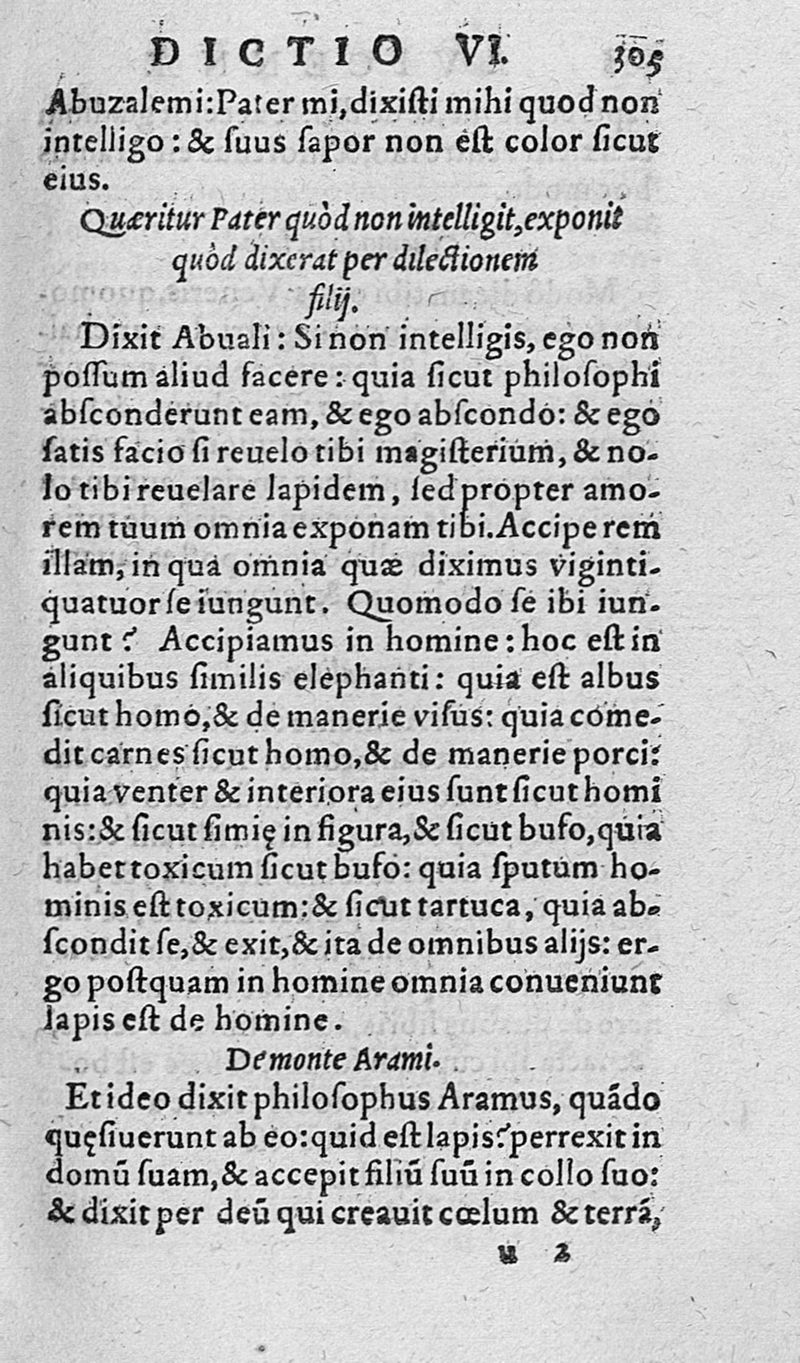 DICTIO VI. 305
Abuzalemi: Pater mi, dixiſti mihi quod non
intelligo: & ſuus ſapor non eſt color ſicut
eius.
Quæritur Pater quòd non intelligit, exponit
quòd dixerat per dilectionem
filij.
Dixit Abuali: Si non intelligis, ego non
poſſum aliud facere: quia ſicut philoſophi
abſconderunt eam, & ego abſcondo: & ego
ſatis facio ſi reuelo tibi magiſterium, & no-
lo tibi reuelare lapidem, ſed propter amo-
rem tuum omnia exponam tibi. Accipe rem
illam, in qua omnia quæ diximus viginti-
quatuor ſe iungunt. Quomodo ſe ibi iun-
gunt? Accipiamus in homine: hoc eſt in
aliquibus ſimilis elephanti: quia eſt albus
ſicut homo, & de manerie viſus: quia come-
dit carnes ſicut homo, & de manerie porci:
quia venter & interiora eius ſunt ſicut homi
nis: & ſicut ſimię in figura, & ſicut bufo, quia
habet toxicum ſicut bufo: quia ſputum ho-
minis eſt toxicum: & ſicut tartuca, quia ab-
ſcondit ſe, & exit, & ita de omnibus alijs: er-
go poſtquam in homine omnia conueniunt
lapis eſt de homine.
De monte Arami.
Et ideo dixit philoſophus Aramus, quãdo
quęſiuerunt ab eo: quid eſt lapis? perrexit in
domũ ſuam, & accepit filiũ ſuũ in collo ſuo:
& dixit per deũ qui creauit cœlum & terrã,
u 2